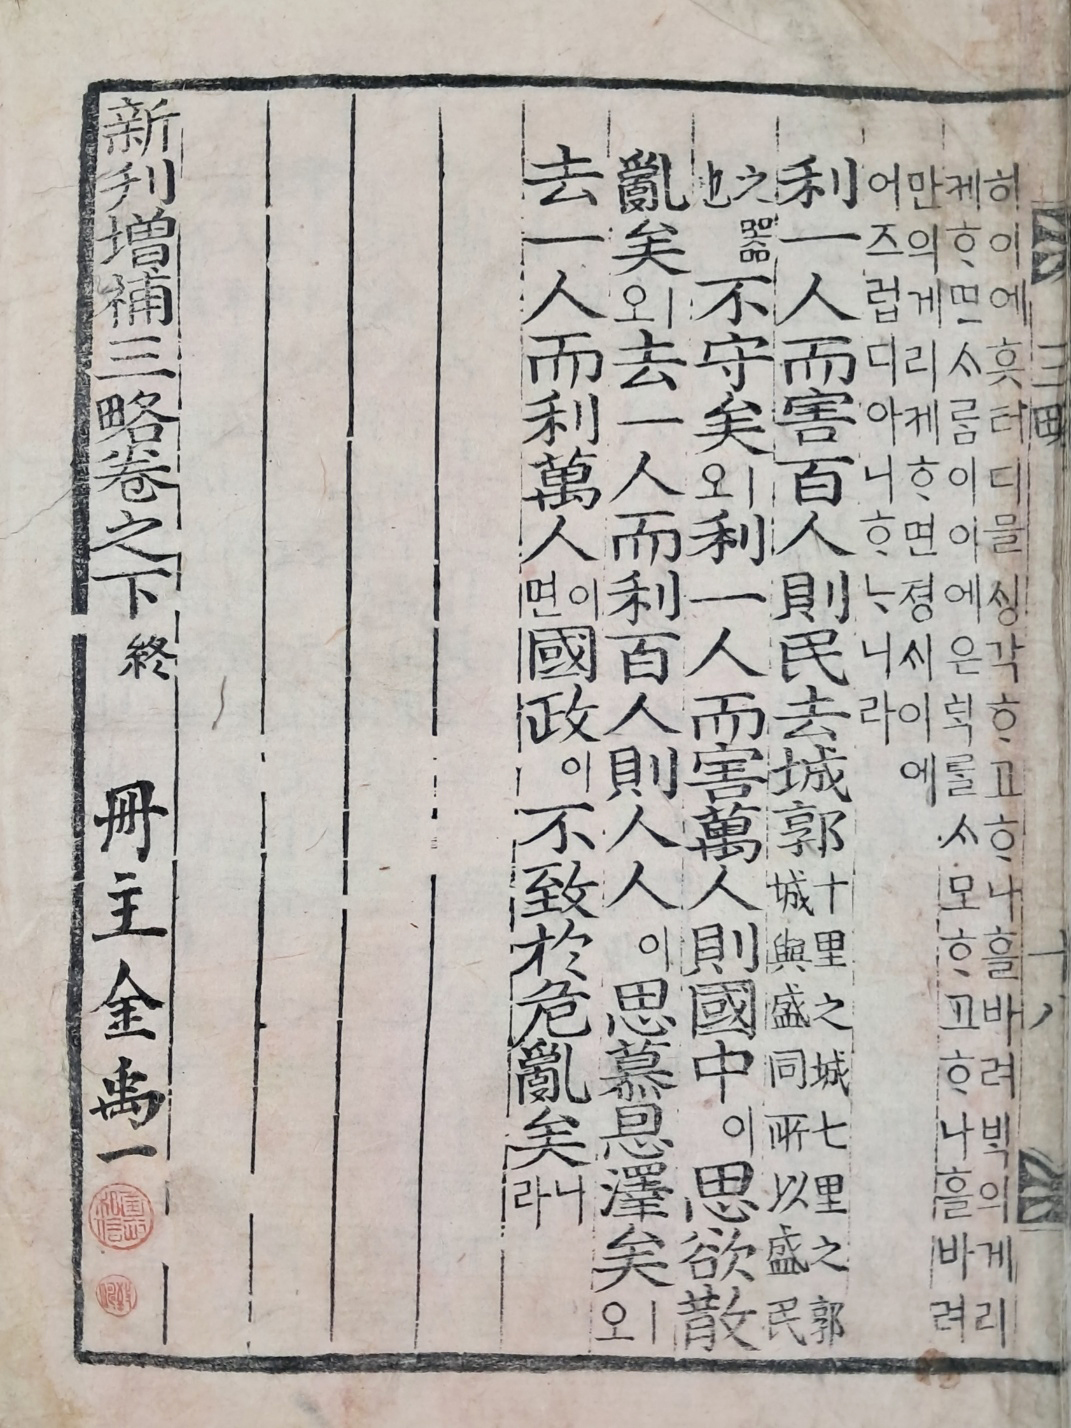 三略 十八
히이에흣터디믈ᄉᆡᆼ각ᄒᆞ고ᄒᆞ나흘바려ᄇᆡᆨ의게리
케ᄒᆞ면ᄉᆞ름이이에은턱를ᄉᆞ모ᄒᆞ고ᄒᆞ나흘바려
만의게리케ᄒᆞ면졍ᄉᆡ이에
어즈럽디아니ᄒᆞᄂᆞ니라
利一人而害百人則民去城郭十里之城七里之郭城與盛同所以盛民
之器也不守矣외利一人而害萬人則國中이思欲散
亂矣외去一人而利百人則人人이思慕恩澤矣외
去一人而利萬人이면國政이不致於危亂矣니라
新刊增補三略卷之下終 冊主金禹一